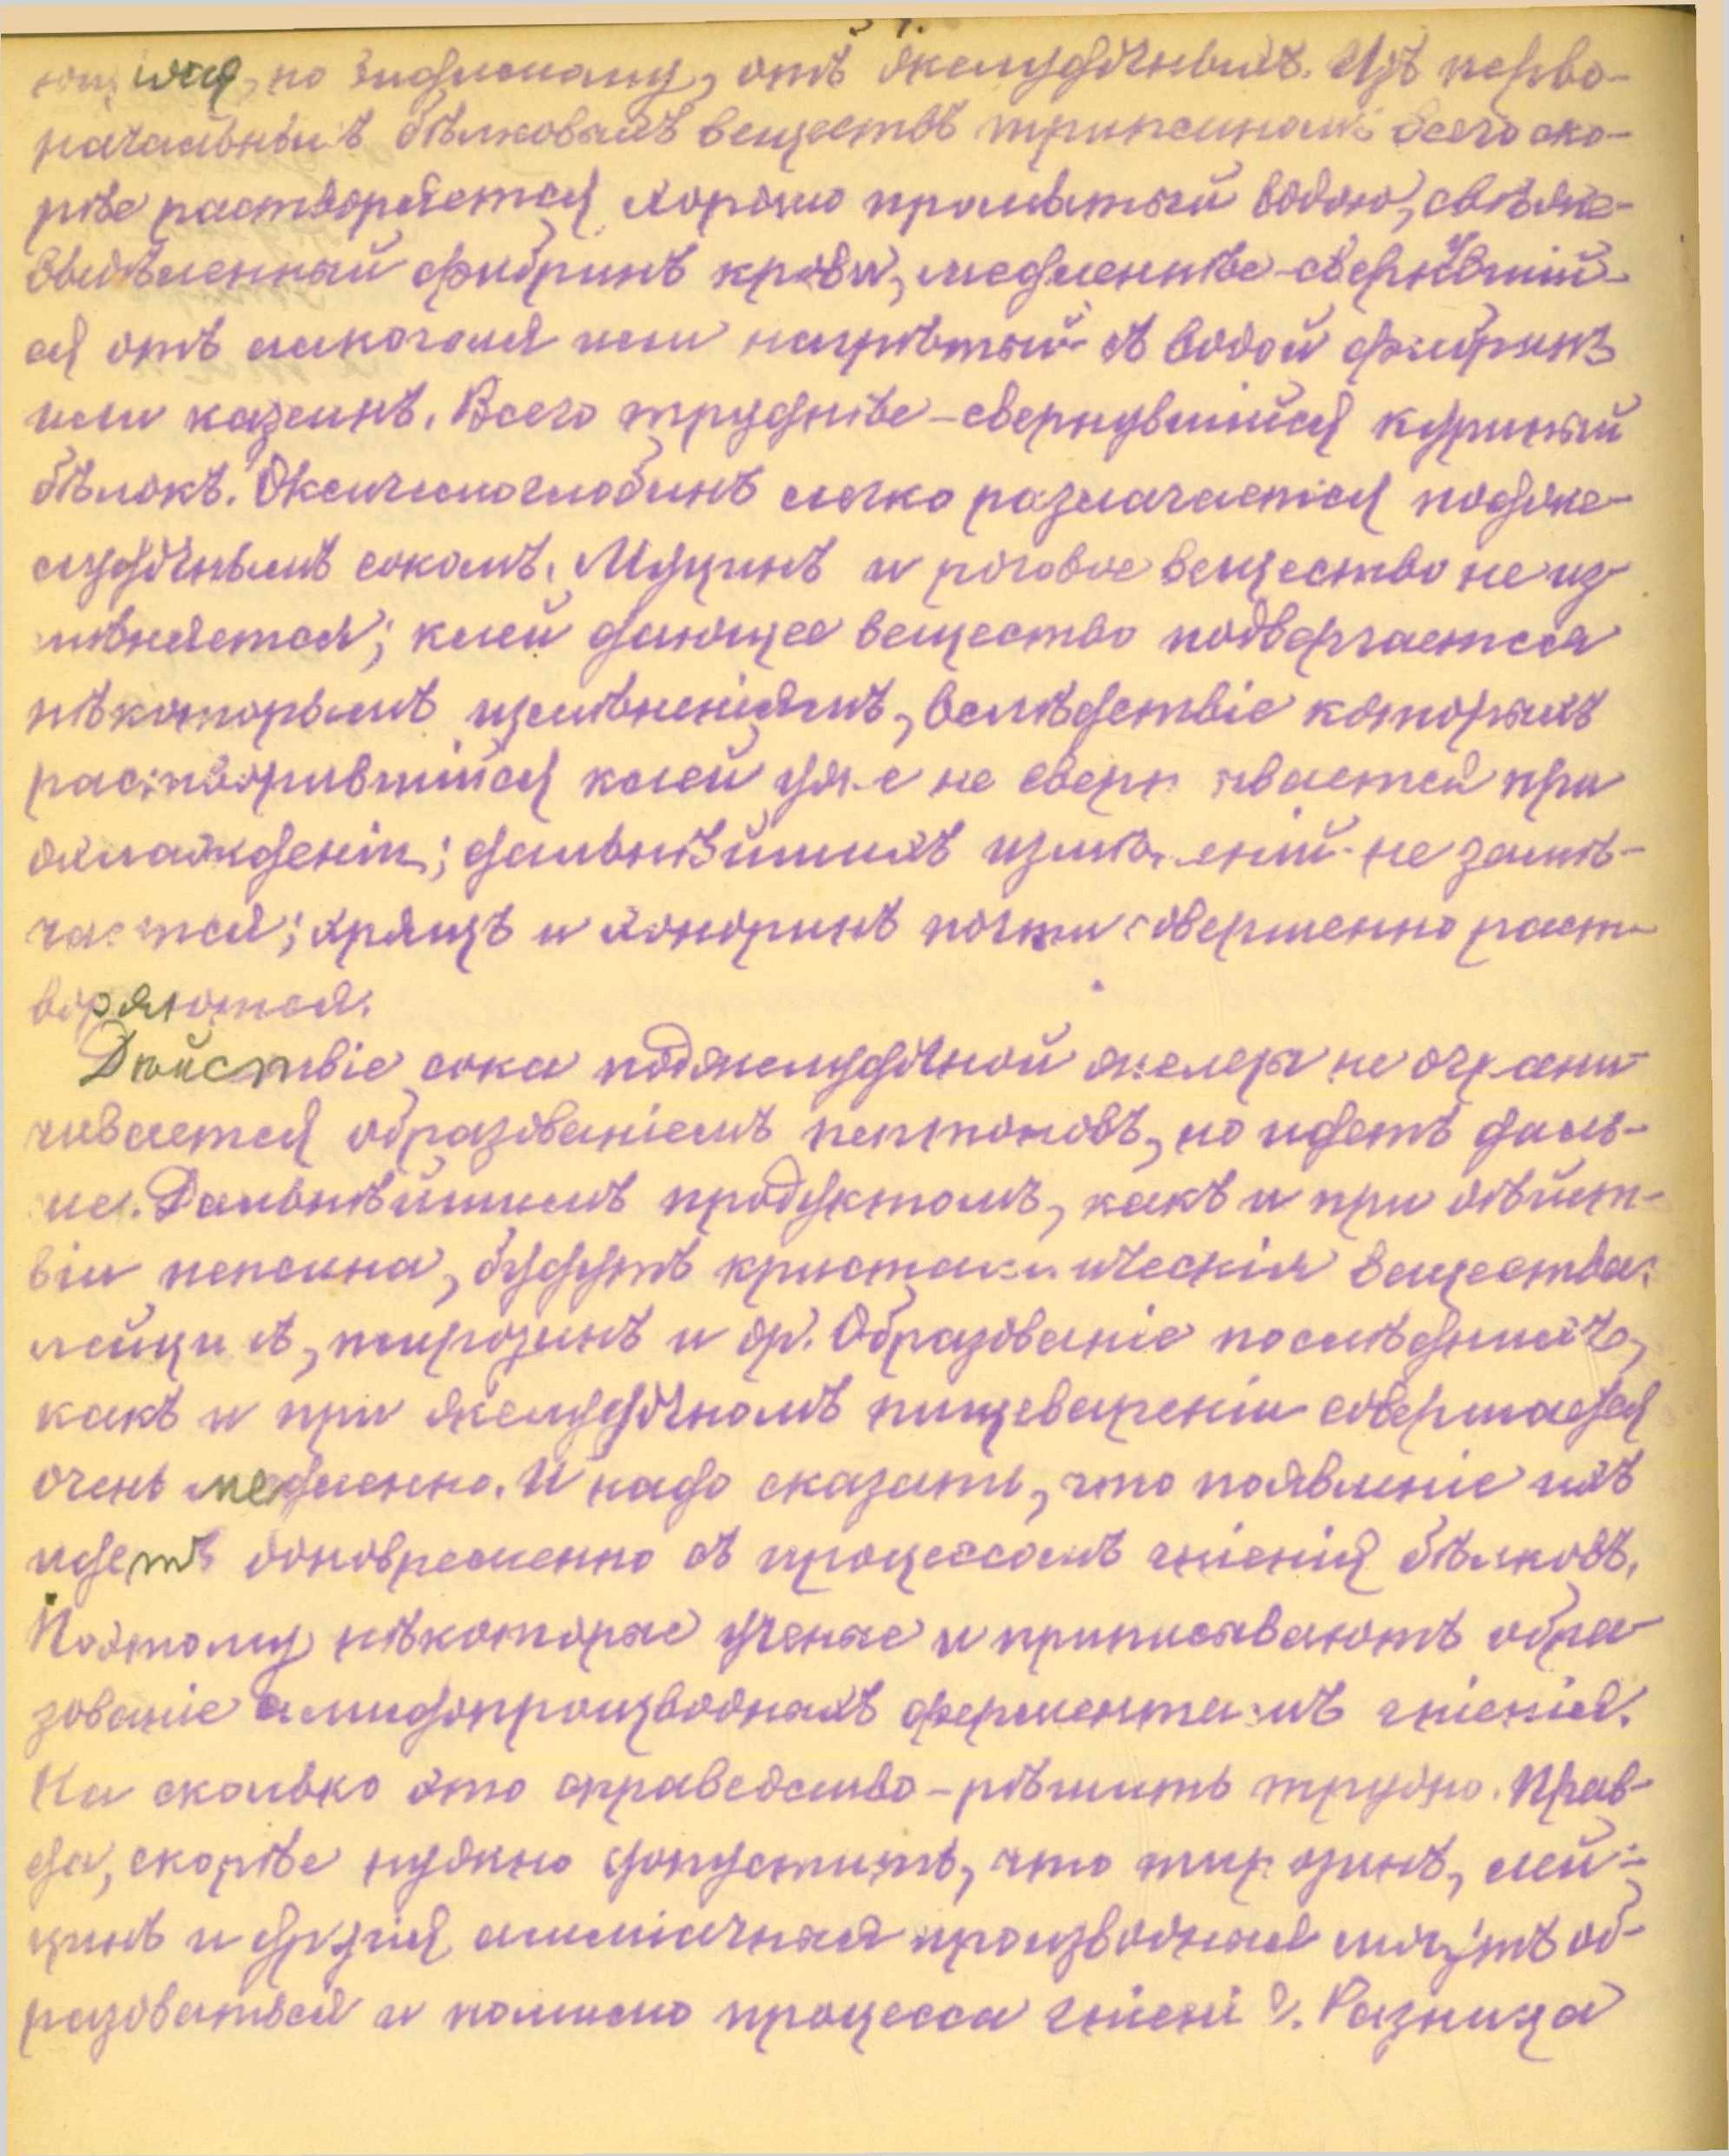 ющіяся, по видимому, отъ желудочныхъ. Изъ перво-
начальныхъ бѣлковыхъ веществъ трипсиномъ всего ско-
рѣе растворяется хорошо промытый водою, свѣже-
выдѣленный фибринъ крови, медленнѣе - свернувшій-
ся отъ алкоголя или нагрѣтый съ водой фибринъ
или казеинъ. Всего труднѣе - свернувшійся куриный
бѣлокъ. Оксигемоглобинъ легко разлагается поджe-
лудочнымъ сокомъ. Муцинъ и роговое вещество не из-
мѣняется; клей дающее вещество подвергается
нѣкоторымъ измѣненіямъ, вслѣдствіе которыхъ
растворившійся клей уже не свертывается при
охлажденіи; дальнѣйшихъ измѣненій не замѣ-
чается; хрящъ и хондринъ почти совершенно раст-
воряются.
Дѣйствіе сока поджелудочной железы не ограни-
чивается образованіемъ пептоновъ, но идетъ даль-
ше. Дальнѣйшимъ продуктомъ, какъ и при дѣйст-
віи пепсина, будутъ кристаллическія вещества:
лейцинъ, тирозинъ и др. Образованіе послѣднихъ,
какъ и при желудочномъ пищевареніи совершается
очень медленно. И надо сказать, что появленіе ихъ
идетъ одновременно съ процессомъ гніенія бѣлковъ.
Поэтому нѣкоторые ученые и приписываютъ обра-
зованіе амидопроизводныхъ ферментамъ гніенія.
На сколько это справедливо - рѣшить трудно. Прав-
да, скорѣе нужно допустить, что тирозинъ, лей-
цинъ и другія амміачныя производныя могутъ об-
разоваться и помимо процесса гніенія. Разница